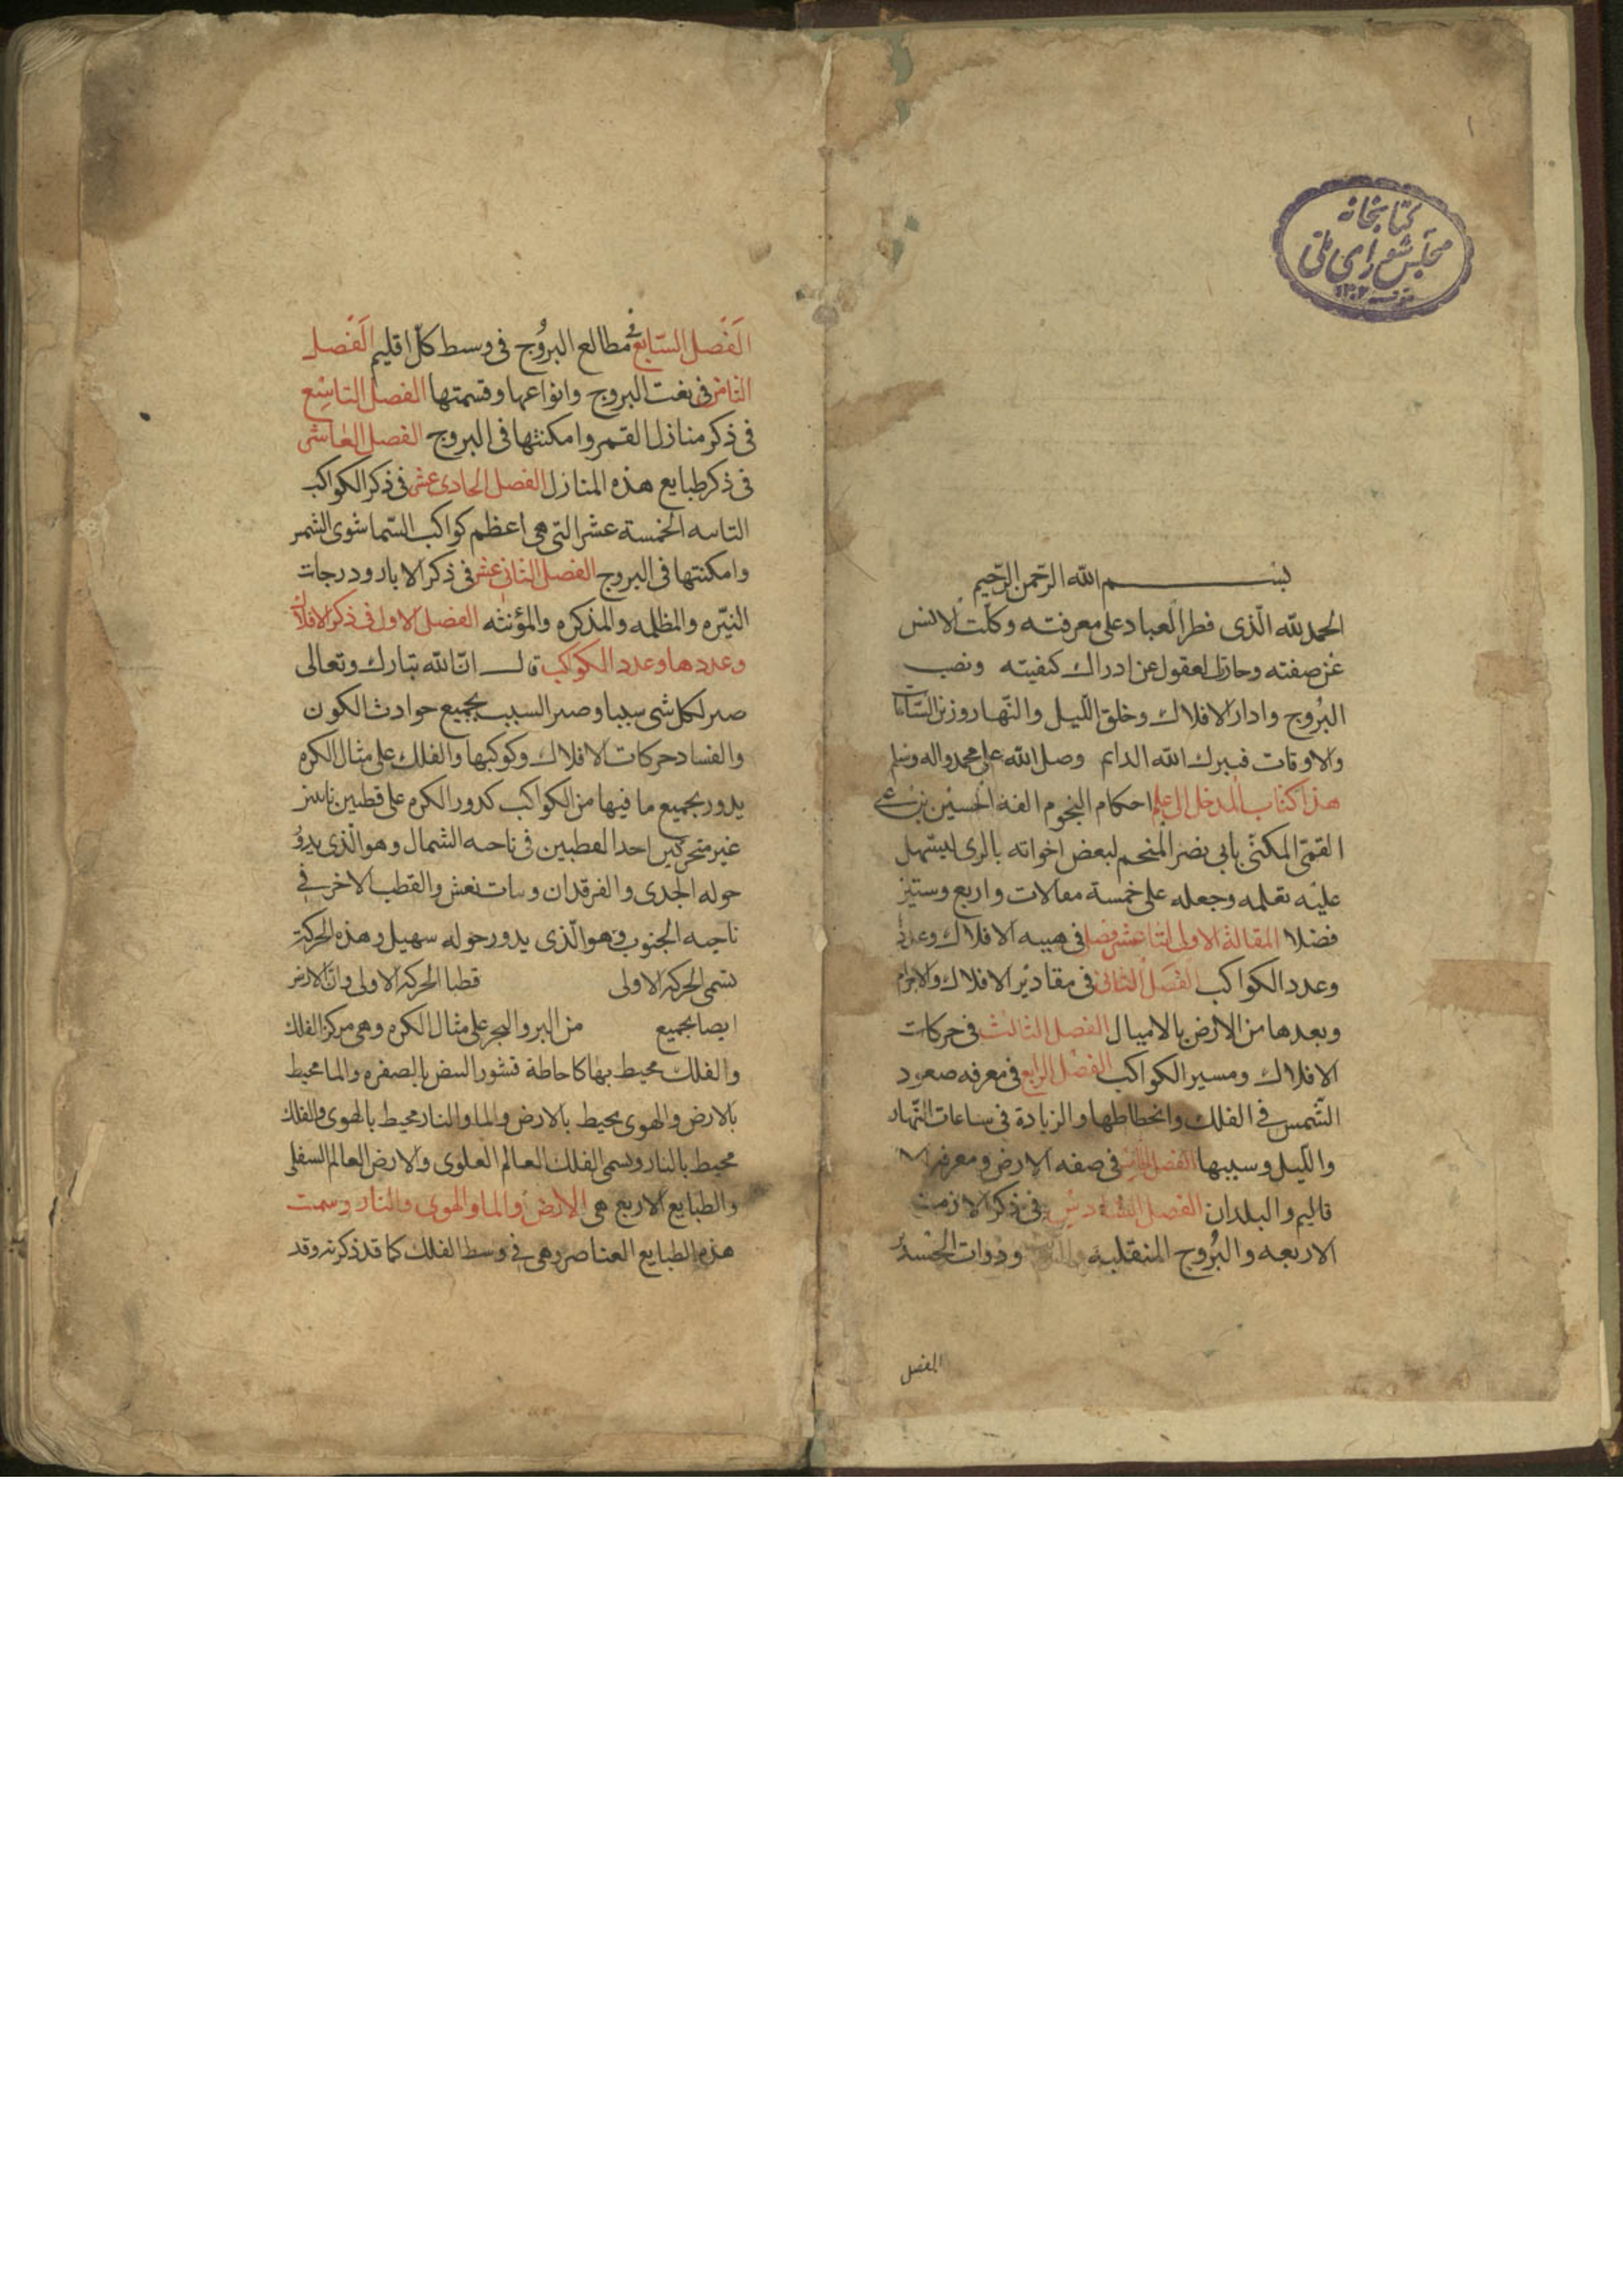 ١
كتابخانه
مجلس شورای ملی
بســـــــم الله الرحمن الرحيم
الحمد لله الّذى فطر العباد على معرفته وكلّت الالسن
عن صفته وحارت العقول عن ادراك كيفيته ونصب
البُروج وادار الافلاك وخلق الّليل والنّهار وزين السّاعات
والاوقات فتبرك الله الدايم وصل الله على محمد واله وسلم
هذا كتاب المدخل الى علم احكام النجوم الفه الحسين بن على
القمّى المكنّى بابى نصر المنجم لبعض اخوانه بالرى ليسهل
عليه تعلمه وجعله على خمسة مقالات واربع وستين
فصلا المقالة الاولى اثنا عشر فصل فى هييه الافلاك وعدد
وعدد الكواكب الفصل الثانى فى مقادير الافلاك والاجرام
وبعدها من الارض بالاميال الفصل الثالث فى حركات
الافلاك ومسير الكواكب الفصل الرابع فى معرفه صعود
الشّمس فى الفلك وانحطاطها والزيادة فى ساعات النّهار
والّليل وسببها الفصل الخامس فى صفه الارض ومعرفه الا
قاليم والبلدان الفصل السّادس فى ذكر الازمنه
الاربعه والبُروج المنقلبه وذوات الجسد
الفصل
الفصل السّابع فى مطالع البرُوج فى وسط كل اقليم الفصل
الثامن فى نعت البروج وانواعها وقسمتها الفصل التاسع
فى ذكر منازل القمر وامكنتها فى البروج الفصل العاشر
فى ذكر طبايع هذه المنازل الفصل الحادى عشر فى ذكر الكواكب
الثابته الخمسة عشر التى هى اعظم كواكب السّما سوى الشمس
وامكنتها فى البروج الفصل الثانى عشر فى ذكر الابار ودرجات
النيّره والمظلمه والمذكره والمؤنثه الفصل الاول فى ذكر الافلاك
وعددها وعدد الكواكب قال انّ الله تبارك وتعالى
صير لكل شى سببا وصير السبب بجميع حوادث الكون
والفساد حركات الافلاك وكوكبها والفلك على مثال الكره
يدور بجميع ما فيها من الكواكب كدور الكره على قطبين ثابتين
غير متحركين احد القطبين فى ناحيه الشمال وهو الّذى يدور
حوله الجدى والفرقدان وبنات نعش والقطب الاخر فى
ناحيه الجنوب وهو الّذى يدور حوله سهيل وهذه الحركة
تسمى الحركه الاولى قطبا الحركه الاولى وان الارض
ايضا بجميع من البر والبحر على مثال الكره وهى مركز الفلك
والفلك محيط بها كاحاطة قشور البيض بالصفره والما محيط
بالارض والهوى محيط بالارض والما والنار محيط بالهوى والفلك
محيط بالنار ويسمى الفلك العالم العلوى والارض العالم السفلى
والطبايع الاربع هى الارض والما والهوى والنار وسمت
هذه الطبايع العناصر وهى فى وسط الفلك كما قد ذكرته وقد